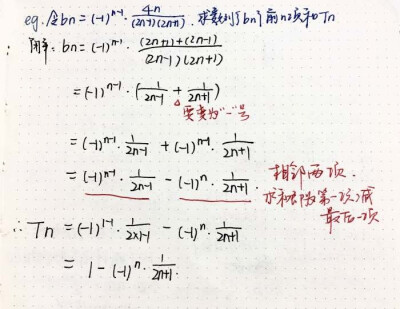 eg. 令bn = (-1)^{n-1} · \frac{4n}{(2n-1)(2n+1)}. 求数列{bn}前n项和Tn
解: bn = (-1)^{n-1} · \frac{(2n+1)+(2n-1)}{(2n-1)(2n+1)}
= (-1)^{n-1} · (\frac{1}{2n-1} + \frac{1}{2n+1})
要变为"-"号
= (-1)^{n-1} · \frac{1}{2n-1} + (-1)^{n-1} · \frac{1}{2n+1}
= (-1)^{n-1} · \frac{1}{2n-1} - (-1)^n · \frac{1}{2n+1}.
相邻两项.
求和 第一项减
最后一项
∴ Tn = (-1)^{1-1} · \frac{1}{2×1-1} - (-1)^n · \frac{1}{2n+1}
= 1 - (-1)^n · \frac{1}{2n+1}.